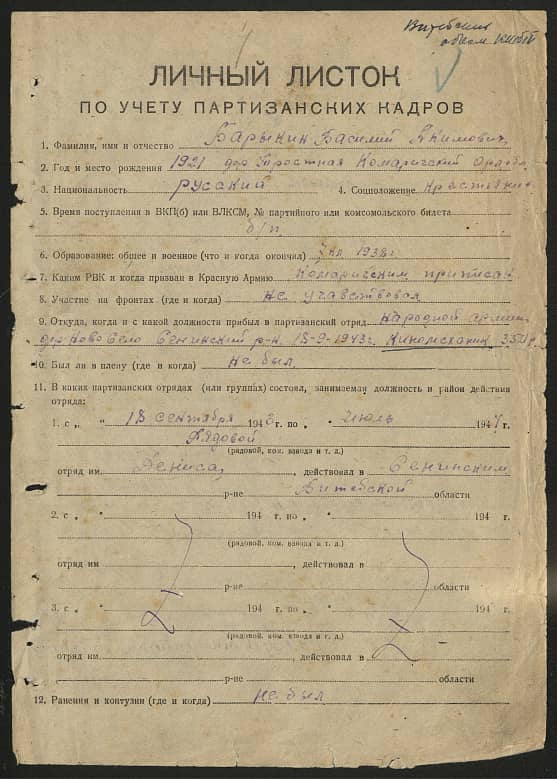 Витебский
обком КП(б)Б
ЛИЧНЫЙ ЛИСТОК
ПО УЧЕТУ ПАРТИЗАНСКИХ КАДРОВ
1. Фамилия, имя и отчество Барыкин Василий Якимович
2. Год и место рождения 1921 дер Тростная Комаричский Орловс.
3. Национальность русский 4. Соцположение Крестьянин
5. Время поступления в ВКП(б) или ВЛКСМ, № партийного или комсомольского билета
б/п
6. Образование: общее и военное (что и когда окончил) 7 кл 1938г.
7. Каким РВК и когда призван в Красную Армию Комаричским приписан
8. Участие на фронтах (где и когда) не учавствовал
9. Откуда, когда и с какой должности прибыл в партизанский отряд народной армии
дер Ново Село Сенинский р-н. 18-9-1943г. Киномеханик
10. Был ли в плену (где и когда) не был
11. В каких партизанских отрядах (или группах) состоял, занимаемая должность и район действия
отряда:
1. с „ " 18 сентября 1943 г. по „ " июль 1944 г.
Рядовой
(рядовой, ком. взвода и т. д.)
отряд им. Дениса, действовал в Сенинским
р-не Витебской области
2. с „ " 194 г. по „ " 194 г.
(рядовой, ком. взвода и т. д.)
отряд им , действовал в
р-не области
3. с „ " 194 г. по „ " 194 г.
(рядовой, ком. взвода и т. д.)
отряд им. , действовал в
р-не области
12. Ранения и контузии (где и когда) не был